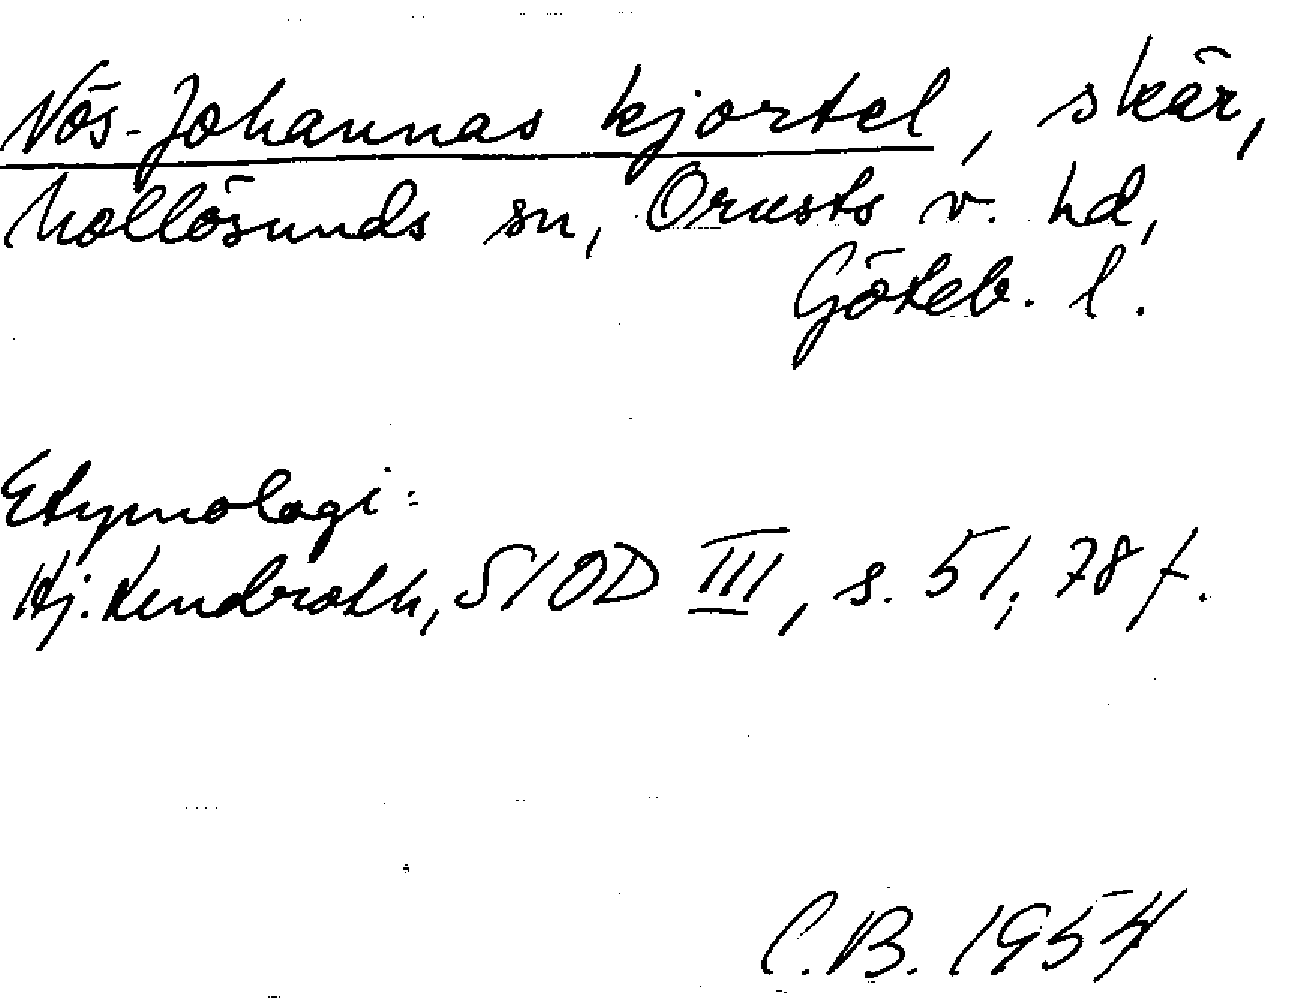 Nös-Johannas kjortel, skär,
Mollösunds sn, Orusts v. hd,
Göteb. l.
Etymologi:
Hj. Lindroth, SIOD III, s. 51, 78 f.
C.B. 1954